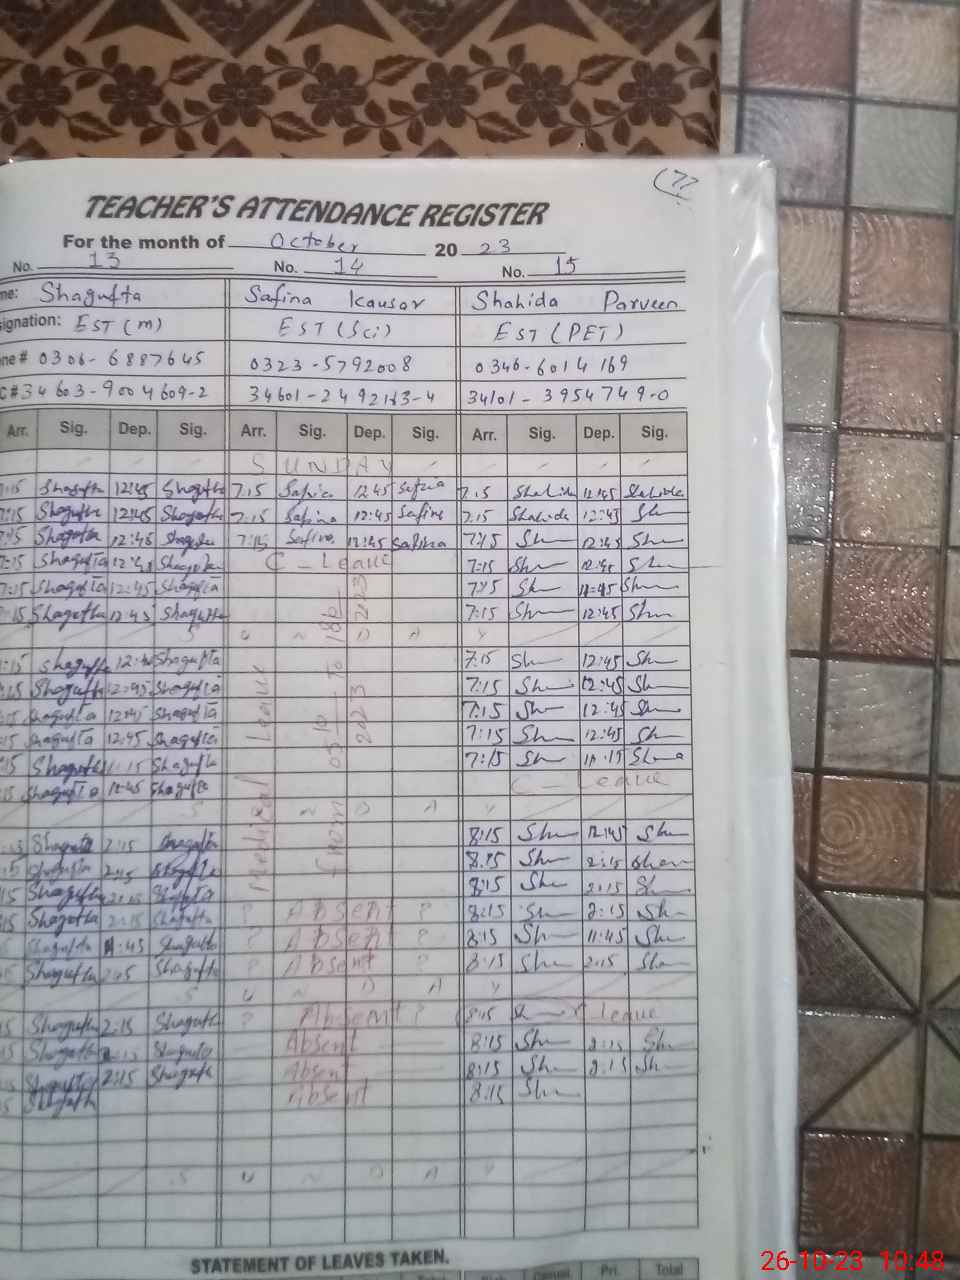 77
TEACHER'S ATTENDANCE REGISTER
For the month of October 20 23
No. 13 No. 14 No. 15
me: Shagufta Safina Kausar Shahida Parveen
signation: EST (m) EST (Sci) EST (PET)
ne # 0306-6887645 0323-5792008 0346-6014169
C # 34603-9004609-2 34601- 34101-3954749-0
Arr. Sig. Dep. Sig. Arr. Sig. Dep. Sig. Arr. Sig. Dep. Sig.
SUNDAY
7:15 Shagufta 12:45 Shagufta 7:15 Safina 12:45 Safina 7:15 Shahida 12:45 Shahida
7:15 Shagufta 12:45 Shagufta 7:15 Safina 12:45 Safina 7:15 Shahida 12:45 Sh
7:15 Shagufta 12:45 Shagufta 7:15 Safina 12:45 Safina 7:15 Sh 12:45 Sh
7:15 Shagufta 12:45 Shagufta C-Leave 7:15 Sh 12:45 Sh
7:15 Shagufta 12:45 Shagufta 7:15 Sh 12:45 Sh
7:15 Shagufta 12:45 Shagufta 7:15 Sh 12:45 Sh
S U N D A Y
Medical Leave
From To
2023 2023
:15 Shagufta 12:45 Shagufta 7:15 Sh 12:45 Sh
:15 Shagufta 12:45 Shagufta 7:15 Sh 12:45 Sh
:15 Shagufta 12:45 Shagufta 7:15 Sh 12:45 Sh
:15 Shagufta 12:45 Shagufta 7:15 Sh 12:45 Sh
:15 Shagufta 11:15 Shagufta 7:15 Sh 11:15 Sh
:15 Shagufta Shagufta C-Leave
S U N D A Y
Shagufta 2:15 Shagufta 8:15 Sh 12:45 Sh
Shagufta 2:15 Shagufta 8:15 Sh 2:15 Sh
15 Shagufta 2:15 Shagufta 8:15 Sh 2:15 Sh
:15 Shagufta 2:15 Shagufta ? Absent ? 8:15 Sh 2:15 Sh
Shagufta 11:45 Shagufta ? Absent ? 8:15 Sh 11:45 Sh
Shagufta 2:15 Shagufta ? Absent ? 8:15 Sh 2:15 Sh
S U N D A Y
15 Shagufta 2:15 Shagufta ? Absent ? 8:15 Sh leave
15 Shagufta 2:15 Shagufta Absent 8:15 Sh 2:15 Sh
15 Shagufta 2:15 Shagufta Absent 8:15 Sh 2:15 Sh
15 Shagufta Absent 8:15 Sh
S U N D A Y
STATEMENT OF LEAVES TAKEN.
Total Sick Casual Pri. Total
26-10-23 10:48